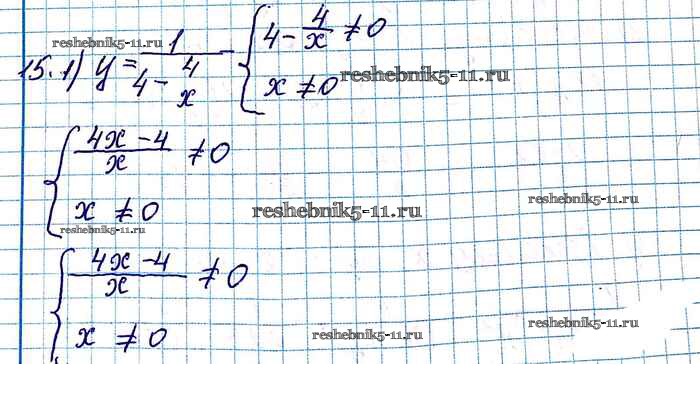 reshebnik5-11.ru
15. 1) y = 1 / (4 - 4/x) { 4 - 4/x ≠ 0
x ≠ 0
reshebnik5-11.ru
{ (4x - 4)/x ≠ 0
x ≠ 0
reshebnik5-11.ru
reshebnik5-11.ru
reshebnik5-11.ru
{ (4x - 4)/x ≠ 0
x ≠ 0
reshebnik5-11.ru
reshebnik5-11.ru